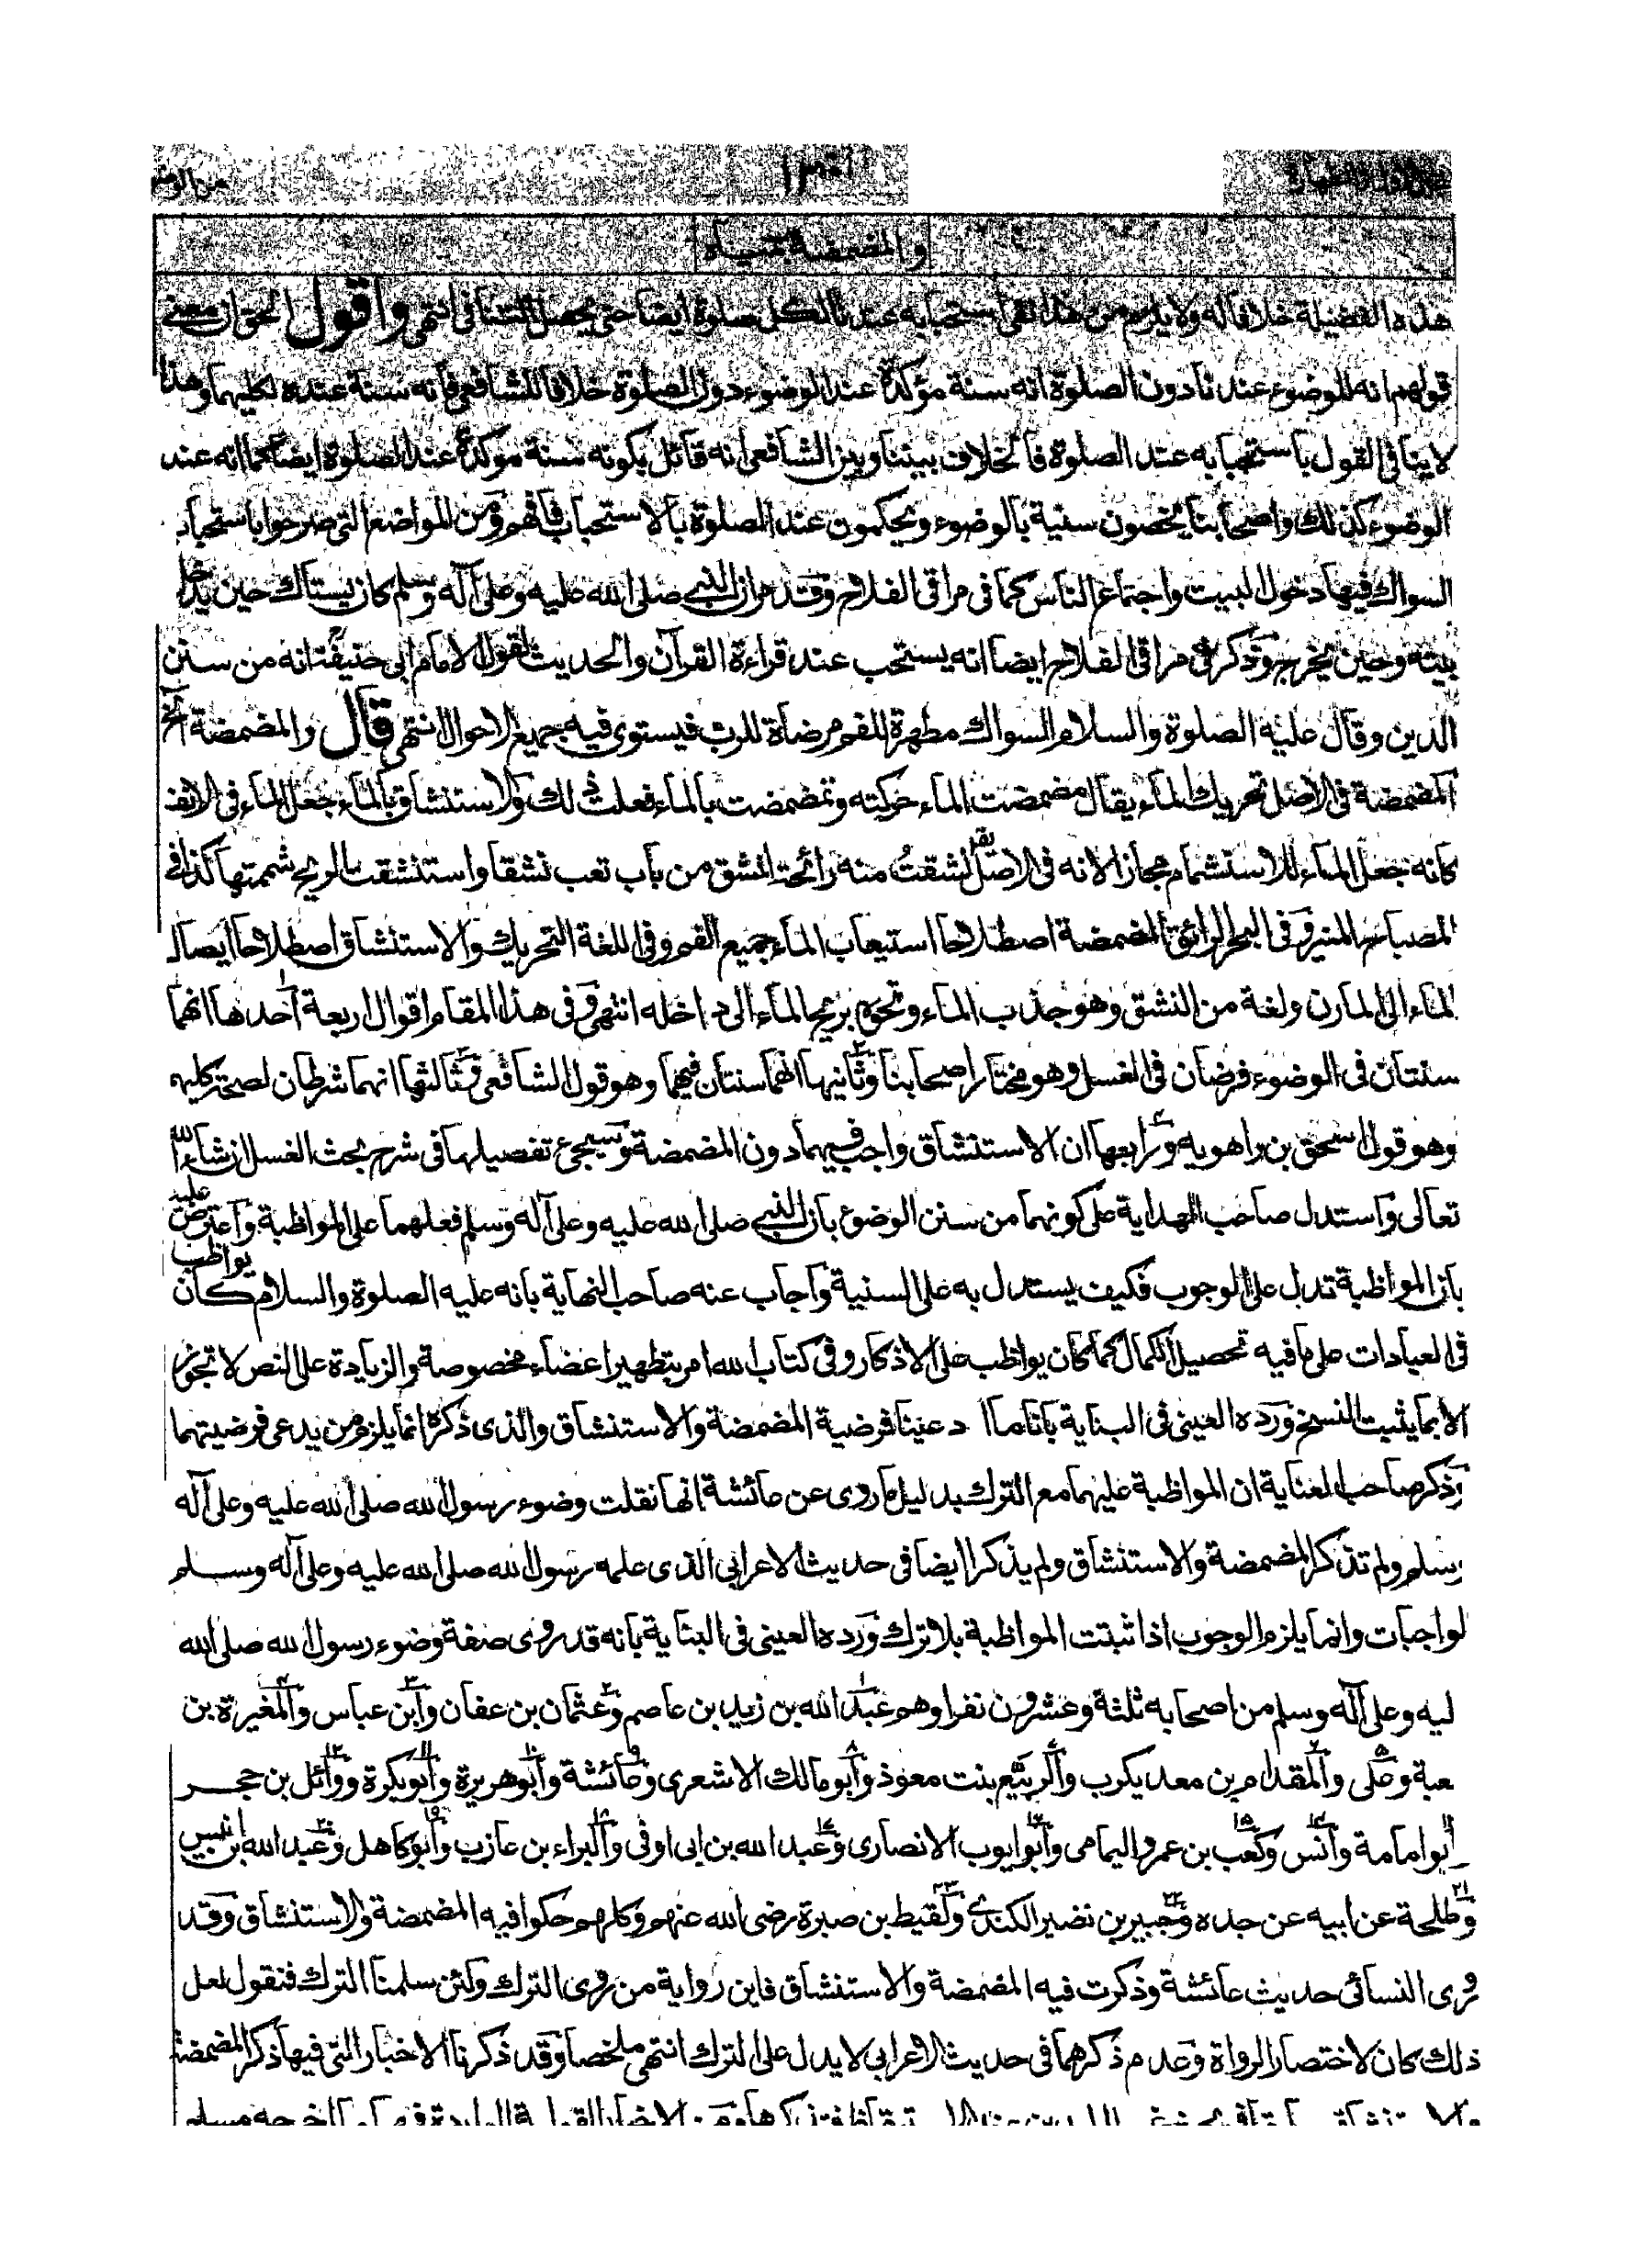 والمضمضة بمياه
هذه الفضيلة خلافا له ولا يلزم من هذا نفي استحبابه عندنا لكل صلوة ايضا حتى يحصل التنافي انتهى واقول الحق ان معنى
قولهم انه للوضوء عندنا دون الصلوة انه سنة مؤكدة عند الوضوء دون الصلوة خلافا للشافعي فانه سنة عنده لكليهما وهذا
لا ينافي القول باستحبابه عند الصلوة فالخلاف بيننا وبين الشافعي انه قائل بكونه سنة مؤكدة عند الصلوة ايضا كما انه عند
الوضوء كذلك واصحابنا يخصون سنية بالوضوء ويحكمون عند الصلوة بالاستحباب فافهم ومن المواضع التي صرحوا باستحباب
السواك فيها دخول البيت واجتماع الناس كما في مراقي الفلاح وقد مر ان النبي صلى الله عليه وعلى آله وسلم كان يستاك حين يدخل
بيته وحين يخرج وذكر في مراقي الفلاح ايضا انه يستحب عند قراءة القرآن والحديث لقول الامام ابي حنيفة انه من سنن
الدين وقال عليه الصلوة والسلام السواك مطهرة للفم مرضاة للرب فيستوي فيه جميع الاحوال انتهى قال والمضمضة الخ
المضمضة في الاصل تحريك الماء يقال مضمضت الماء حركته وتمضمضت بالماء فعلت ذلك والاستنشاق بالماء جعل الماء في الانف
كانه جعل الماء للاستشمام مجازا لانه في الاصل يقال نشقت منه رائحة انشق من باب تعب نشقا واستنشقت الريح شممتها كذا في
المصباح المنير وفي البحر الرائق المضمضة اصطلاحا استيعاب الماء جميع الفم وفي اللغة التحريك والاستنشاق اصطلاحا ايصال
الماء الى المارن ولغة من النشق وهو جذب الماء ونحوه بريح الماء الى داخله انتهى وفي هذا المقام اقوال اربعة احدها انهما
سنتان في الوضوء فرضان في الغسل وهو مختار اصحابنا وثانيها انهما سنتان فيهما وهو قول الشافعي وثالثها انهما شرطان لصحة كليه
وهو قول اسحق بن راهويه ورابعها ان الاستنشاق واجب فيهما دون المضمضة وسيجئ تفصيلها في شرح بحث الغسل ان شاء الله
تعالى واستدل صاحب الهداية على كونهما من سنن الوضوء بان النبي صلى الله عليه وعلى آله وسلم فعلهما على المواظبة واعترض عليه
بان المواظبة تدل على الوجوب فكيف يستدل به على السنية واجاب عنه صاحب النهاية بانه عليه الصلوة والسلام كان يواظب
في العبادات على ما فيه تحصيل الكمال كما كان يواظب على الاذكار وفي كتاب الله امر بتطهير اعضاء مخصوصة والزيادة على النص لا تجوز
الا بما يثبت النسخ ورده العيني في البناية بانا ما ادعينا فرضية المضمضة والاستنشاق والذي ذكره انما يلزم من يدعي فرضيتهما
وذكر صاحب العناية ان المواظبة عليهما مع الترك بدليل ما روى عن عائشة انها نقلت وضوء رسول الله صلى الله عليه وعلى آله
وسلم ولم تذكر المضمضة والاستنشاق ولم يذكرا ايضا في حديث الاعرابي الذي علمه رسول الله صلى الله عليه وعلى آله وسلم
لواجبات وانما يلزم الوجوب اذا ثبتت المواظبة بلا ترك ورده العيني في البناية بانه قد روى صفة وضوء رسول الله صلى الله
ليه وعلى آله وسلم من اصحابه ثلثة وعشرون نفرا وهم عبد الله بن زيد بن عاصم وعثمان بن عفان وابن عباس والمغيرة بن
عبة وعلى والمقدام بن معد يكرب والربيع بنت معوذ وابو مالك الاشعري وعائشة وابو هريرة وابو بكرة ووائل بن حجر
ابو امامة وانس وكعب بن عمرو اليمامي وابو ايوب الانصاري وعبد الله بن ابي اوفى والبراء بن عازب وابو كاهل وعبد الله بن انيس
وطلحة عن ابيه عن جده وجبير بن نضير الكندي ولقيط بن صبرة رضي الله عنهم وكلهم حكوا فيه المضمضة والاستنشاق وقد
روى النسائي حديث عائشة وذكرت فيه المضمضة والاستنشاق فاين رواية من روى الترك ولئن سلمنا الترك فنقول لعل
ذلك كان لاختصار الرواة وعدم ذكرهما في حديث الاعرابي لا يدل على الترك انتهى ملخصا وقد ذكرنا الاخبار التي فيها ذكر المضمضة